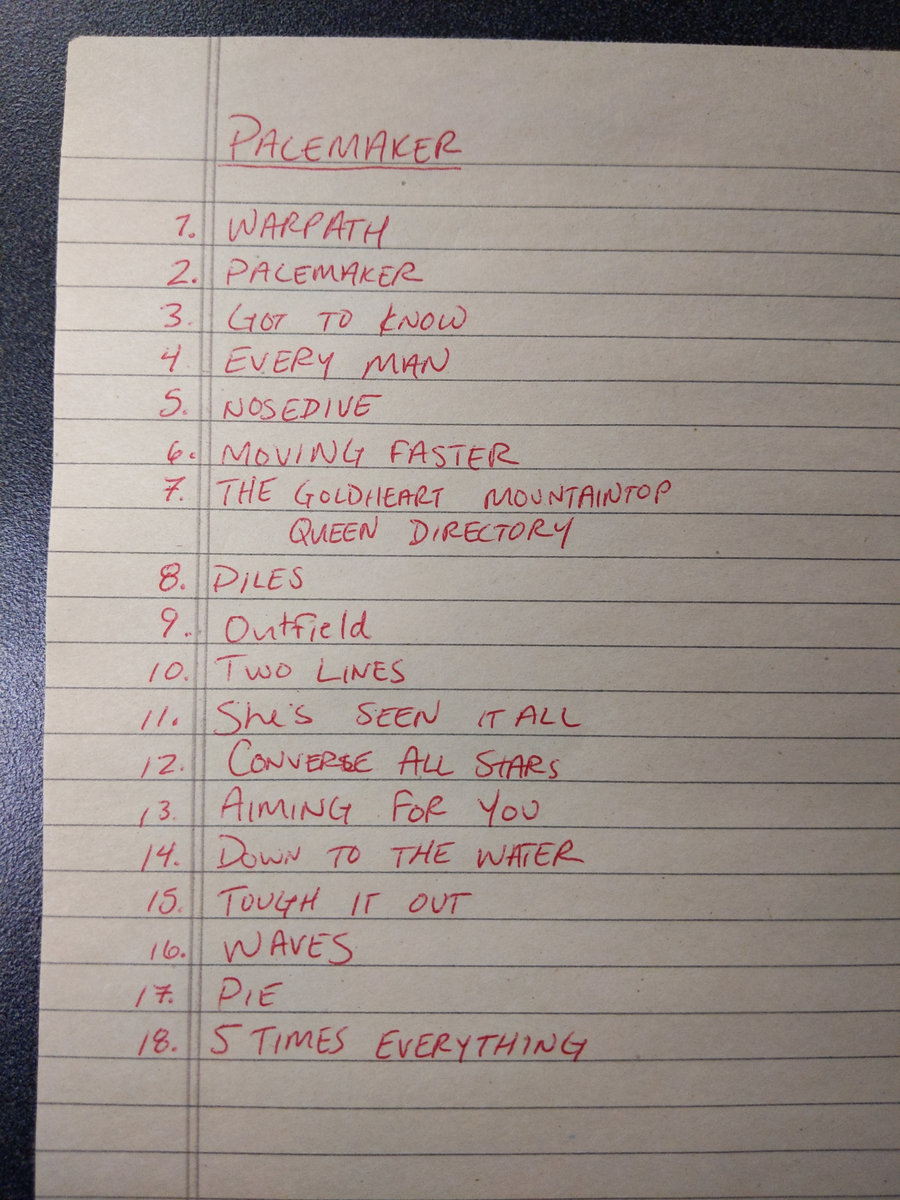 PACEMAKER
1. WARPATH
2. PACEMAKER
3. GOT TO KNOW
4. EVERY MAN
5. NOSEDIVE
6. MOVING FASTER
7. THE GOLDHEART MOUNTAINTOP
QUEEN DIRECTORY
8. PILES
9. Outfield
10. TWO LINES
11. She's SEEN IT ALL
12. CONVERSE ALL STARS
13. AIMING FOR YOU
14. DOWN TO THE WATER
15. TOUGH IT OUT
16. WAVES
17. PIE
18. 5 TIMES EVERYTHING